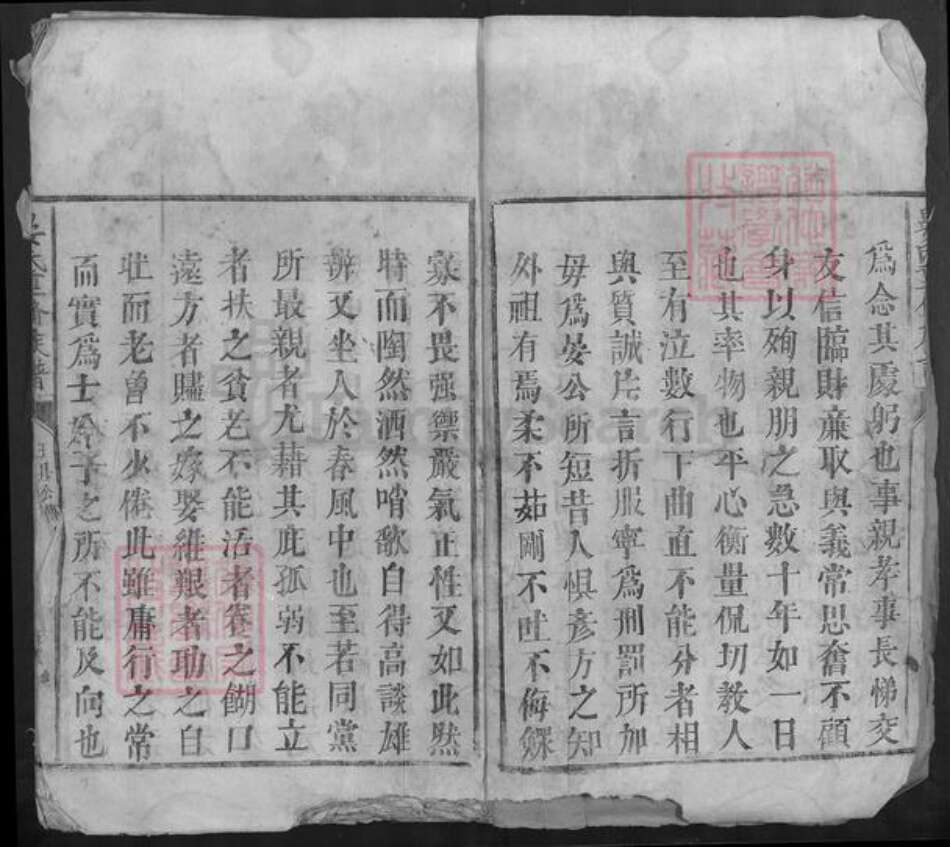 爲念其處躬也事親孝事長悌交
友信臨財廉取與義常思奮不顧
身以殉親朋之急數十年如一日
也其率物也平心衡量侃切教人
至有泣數行下曲直不能分者相
與質誠片言折服寧爲刑罰所加
毋爲晏公所短昔人惧彥方之知
外祖有焉柔不茹剛不吐不侮鰥
寡不畏强禦嚴氣正性又如此然
時而陶然洒然哨歌自得高談雄
辨又坐人於春風中也至若同黨
所最親者尤藉其庇孤弱不能立
者扶之貧老不能活者養之餬口
遠方者贐之嫁娶維艱者助之自
壯而老曾不少倦此雖庸行之常
而實爲士君子之所不能及向也